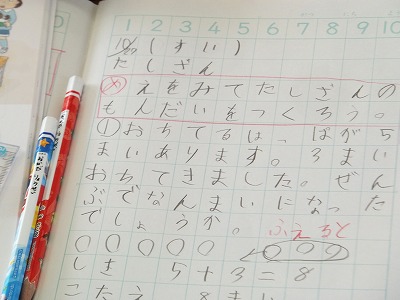 1 2 3 4 5 6 7 8 9 10
(すい)
たしざん
め えをみてたしざんの
もんだいをつくろう。
①おちてるは、はが5
まいあります。3まい
おちてきました。ぜん
ぶでなんまいになった
でしょうか。ふえると
○○○○○ ○○○
しき 5+3=8
こたえ 8まい